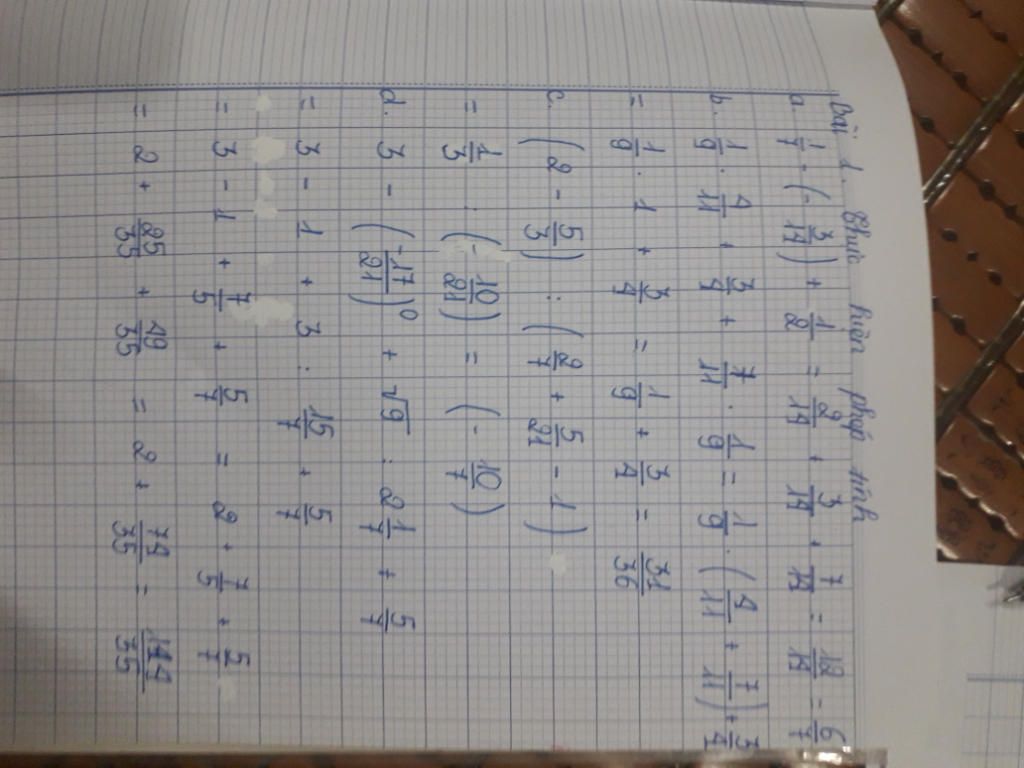 Bài 1. Thực hiện phép tính
a. 1/7 - (- 3/14) + 1/2 = 2/14 + 3/14 + 7/14 = 12/14 = 6/7
b. 1/9 . 4/11 + 3/4 + 7/11 . 1/9 = 1/9 . (4/11 + 7/11) + 3/4
= 1/9 . 1 + 3/4 = 1/9 + 3/4 = 31/36
c. (2 - 5/3) : (2/7 + 5/21 - 1)
= 1/3 : (- 10/21) = (- 10/7)
d. 3 - (-17/21)^0 + √9 : 2 1/7 + 5/7
= 3 - 1 + 3 : 15/7 + 5/7
= 3 - 1 + 7/5 + 5/7 = 2 + 7/5 + 5/7
= 2 + 25/35 + 49/35 = 2 + 74/35 = 144/35